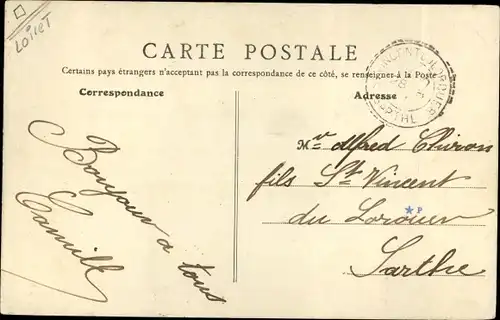 LOIRET
CARTE POSTALE
Certains pays étrangers n'acceptant pas la correspondance de ce côté, se renseigner à la Poste
Correspondance
Adresse
Bonjour à tous
Camille
Mr Alfred Chiron
fils St Vincent
du Lorouër
Sarthe
P